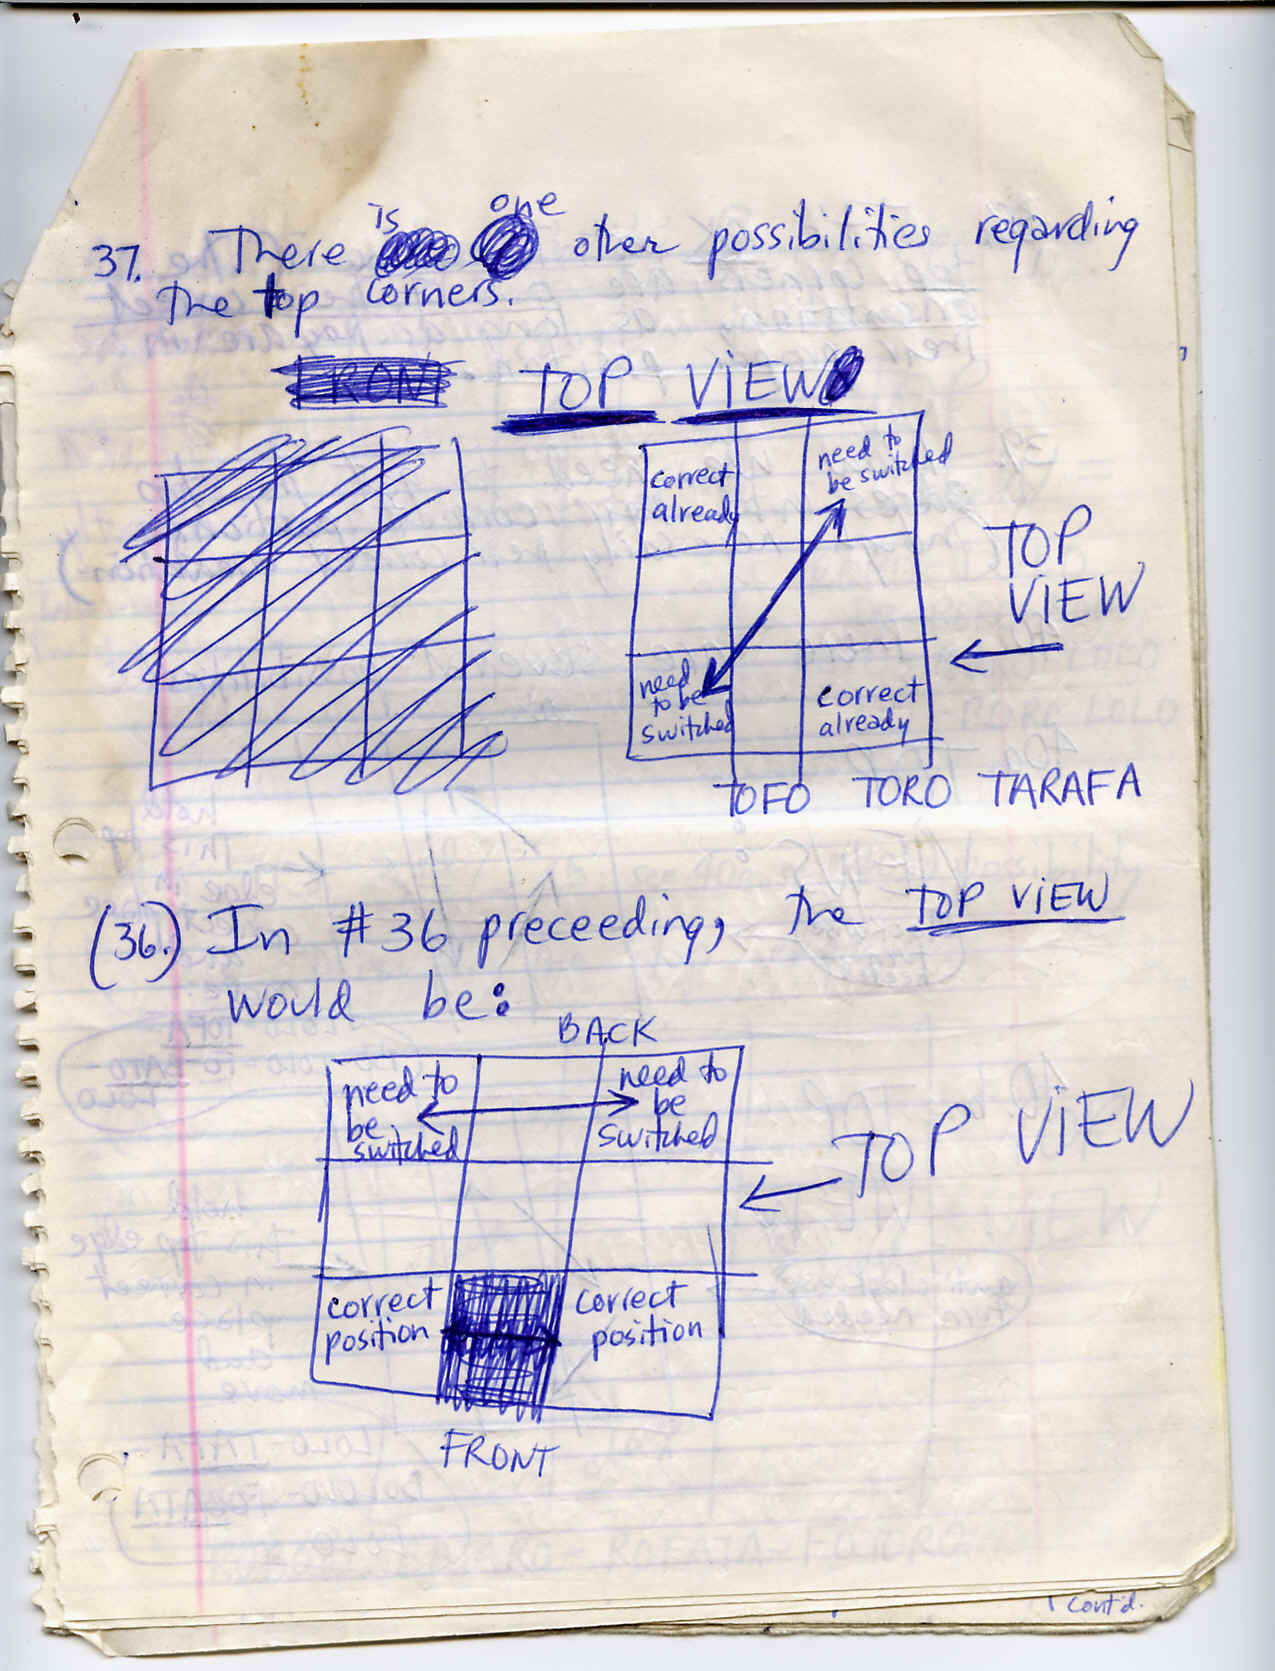 is one
37. There other possibilities regarding
the top corners.
FRONT TOP VIEW
correct
already
need to
be switched
TOP
VIEW
need
to be
switched
correct
already
TOFO TORO TARAFA
(36.) In #36 preceeding, the TOP VIEW
would be:
BACK
need to
be
switched
need to
be
switched
TOP VIEW
correct
position
correct
position
FRONT
cont'd.